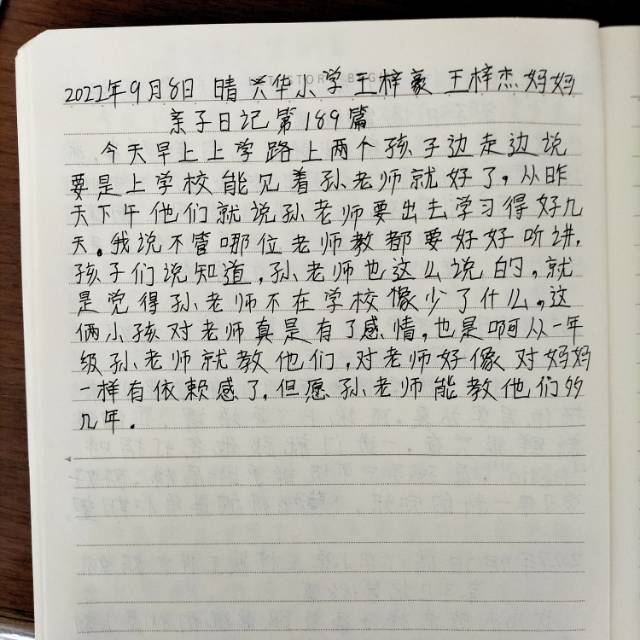 2022年9月8日 晴 兴华小学王梓豪 王梓杰妈妈
亲子日记第189篇
今天早上上学路上两个孩子边走边说
要是上学校能见着孙老师就好了，从昨
天下午他们就说孙老师要出去学习得好几
天。我说不管哪位老师教都要好好听讲，
孩子们说知道，孙老师也这么说的，就
是觉得孙老师不在学校像少了什么。这
俩小孩对老师真是有了感情，也是啊从一年
级孙老师就教他们，对老师好像对妈妈
一样有依赖感了，但愿孙老师能教他们多
几年。